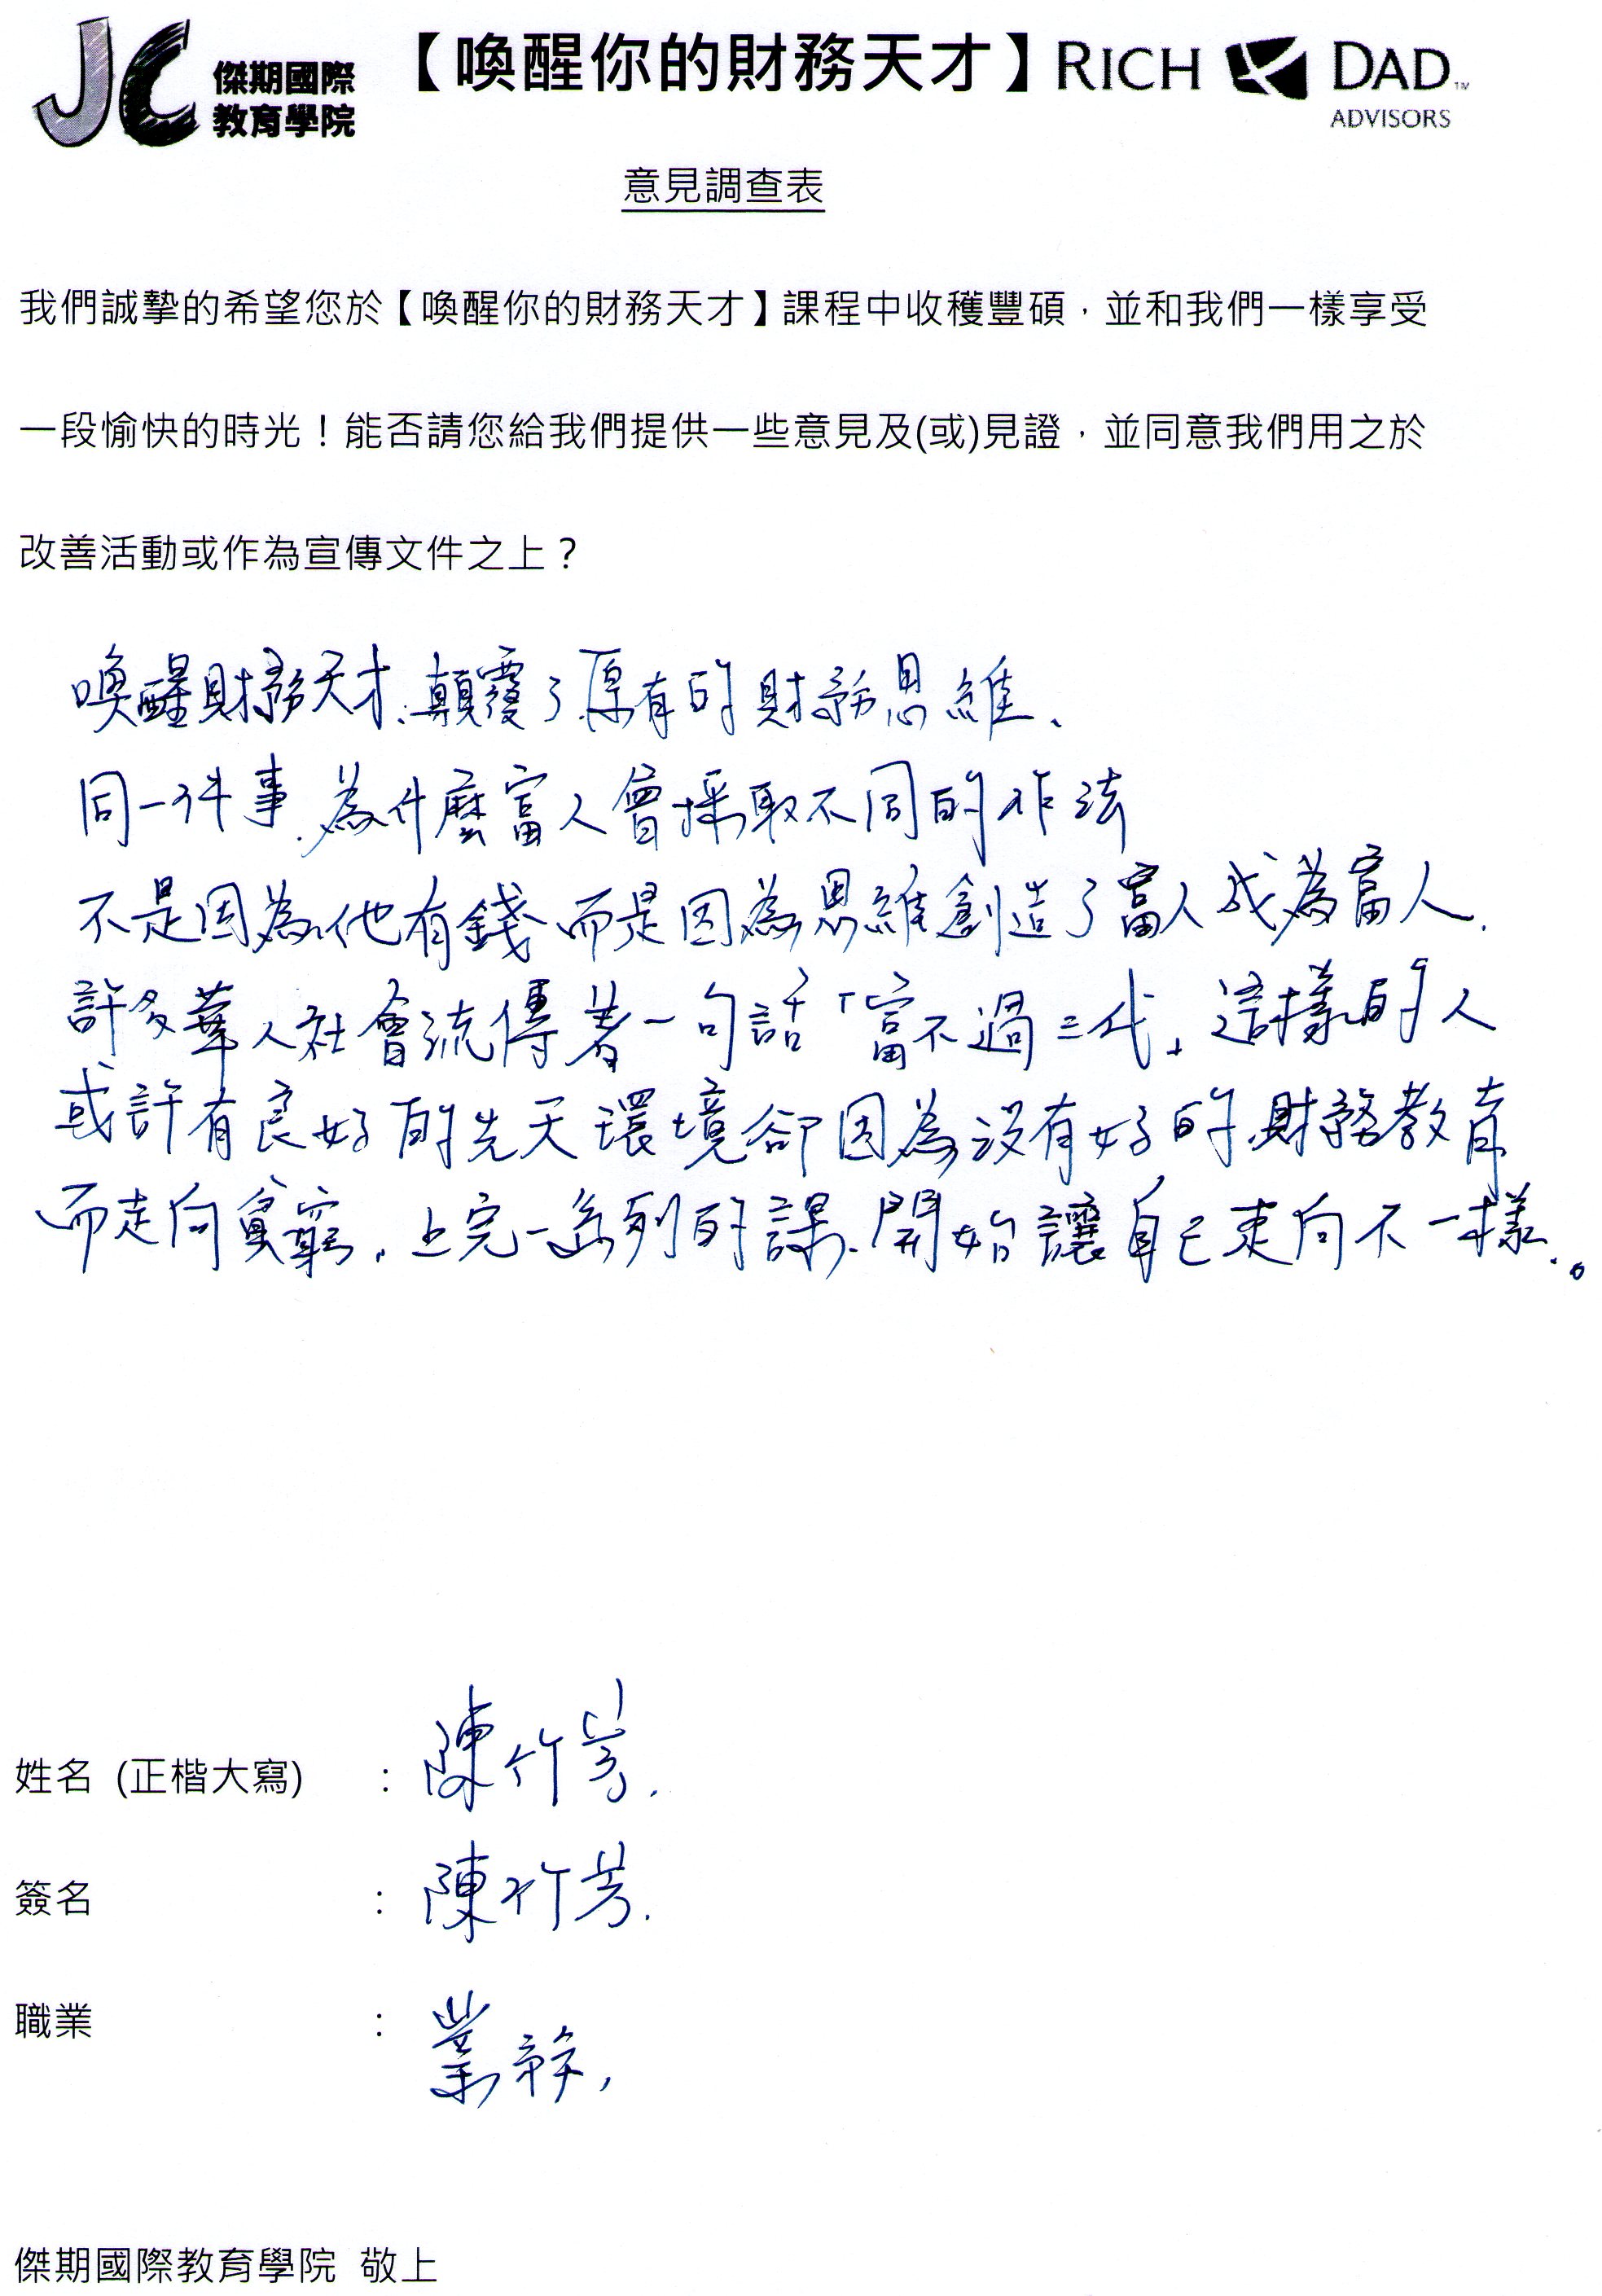 JC 傑期國際
教育學院
【喚醒你的財務天才】
RICH DAD™
ADVISORS
意見調查表
我們誠摯的希望您於【喚醒你的財務天才】課程中收穫豐碩，並和我們一樣享受
一段愉快的時光！能否請您給我們提供一些意見及(或)見證，並同意我們用之於
改善活動或作為宣傳文件之上？
喚醒財務天才、顛覆了原有的財務思維、
同一件事、為什麼富人會採取不同的作法
不是因為他有錢 而是因為思維創造了富人成為富人.
許多華人社會流傳著一句話「富不過三代」這樣的人
或許有良好的先天環境卻因為沒有好的財務教育
而走向貧窮. 上完一系列的課. 開始讓自己走向不一樣.。
姓名 (正楷大寫) : 陳竹芳.
簽名 : 陳竹芳.
職業 : 業務,
傑期國際教育學院 敬上